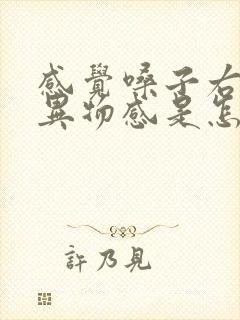 感覺嗓子右
異物感是怎
許乃見